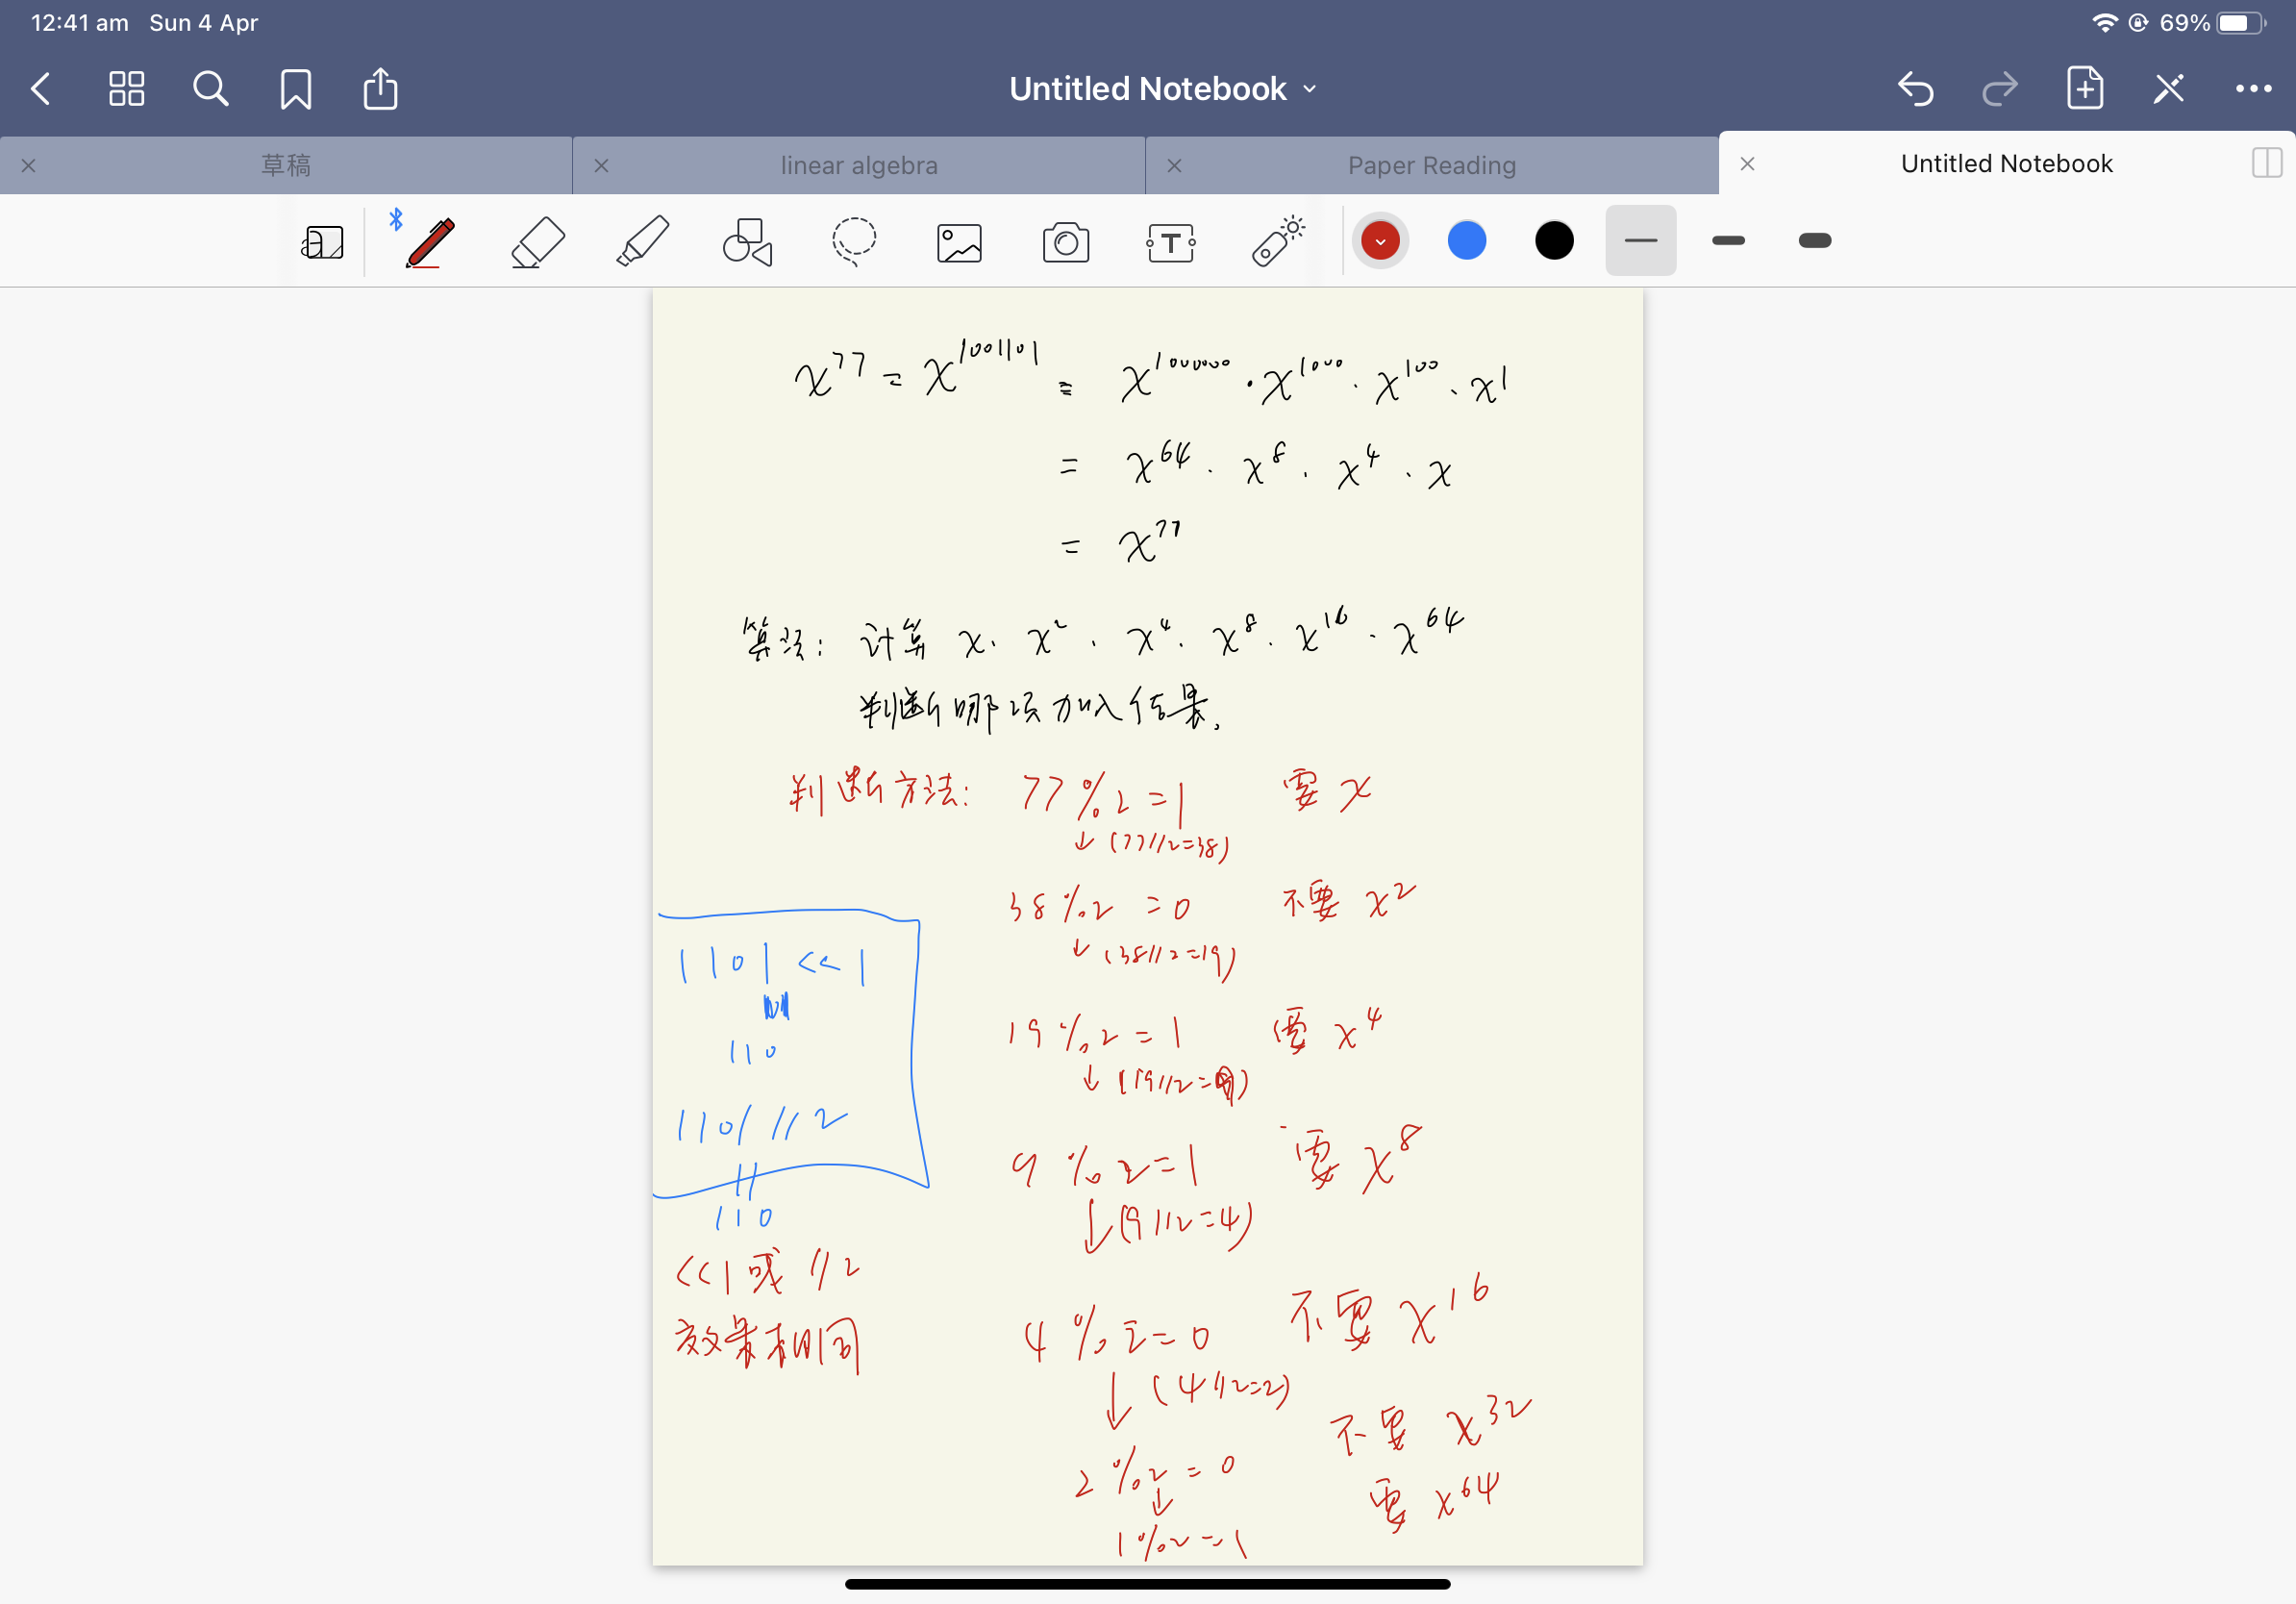 12:41 am Sun 4 Apr 69%
Untitled Notebook
草稿 linear algebra Paper Reading Untitled Notebook
x^77 = x^1001101 = x^1000000 · x^1000 · x^100 · x^1
= x^64 · x^8 · x^4 · x
= x^77
算法: 计算 x. x^2 . x^4. x^8 . x^16 . x^64
判断哪项加入结果.
判断方法: 77 % 2 = 1 要 x
↓ (77//2=38)
38 % 2 = 0 不要 x^2
↓ (38//2=19)
19 % 2 = 1 要 x^4
↓ (19//2=9)
9 % 2 = 1 要 x^8
↓ (9//2=4)
4 % 2 = 0 不要 x^16
↓ (4//2=2)
2 % 2 = 0 不要 x^32
↓
1 % 2 = 1 要 x^64
1101 << 1
110
1101 // 2
||
110
<<1 或 //2
效果相同